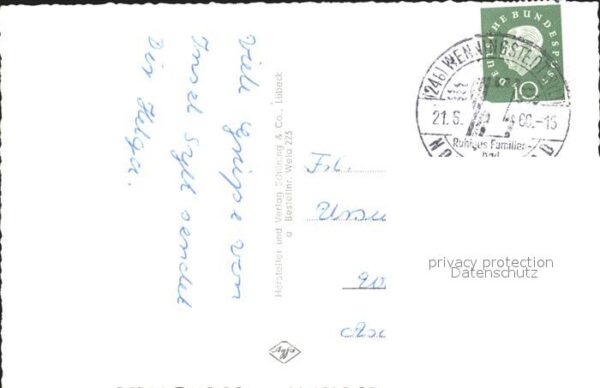 Viele Grüße von
Insel Sylt sendet
Dir Helga.
Hersteller und Verlag Schöning & Co., Lübeck
Bestellnr. We1a 225
Frl.
Ursu
Agfa
DEUTSCHE BUNDESPOST
10
(24b) WENNINGSTEDT
21.6. 60.-15
Ruhiges Familien-
bad
NORD
privacy protection
Datenschutz